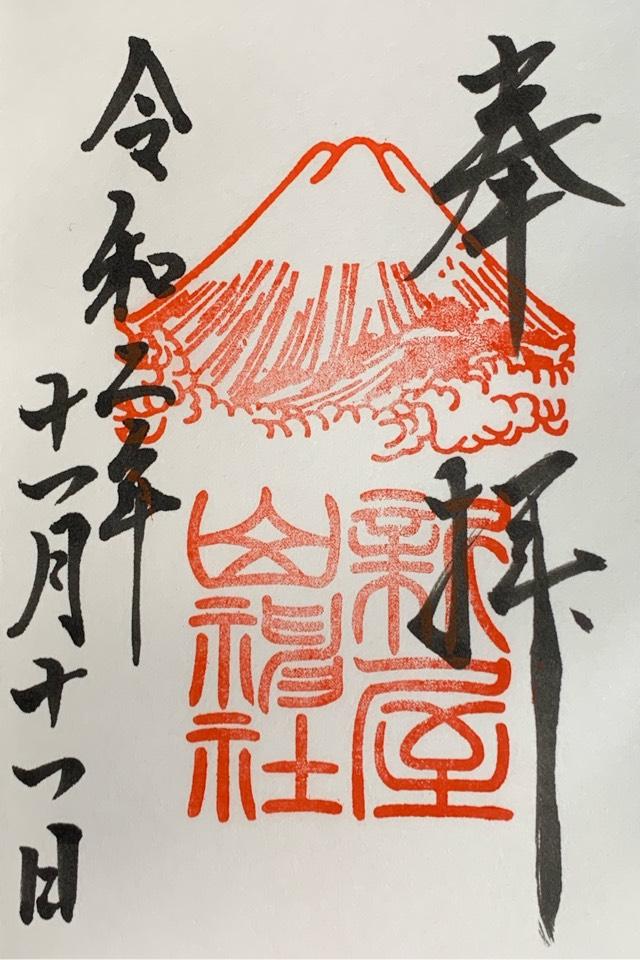 奉拝
新屋
山神社
令和二年
十一月十一日